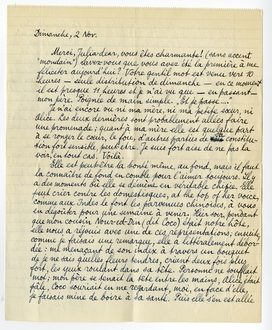 Dimanche, 2 Nov.
Merci, Julia dear, vous êtes charmante! (sans accent
"mondain") Savez-vous que vous avez été la première à me
féliciter aujourd'hui? Votre gentil mot est venu vers 10
heures - seule distribution de dimanche - en ce moment
il est presque 11 heures et je n'ai vu que - en passant -
mon père. Poignée de main simple. Et je passe...
Je n'ai encore vu ni ma mère, ni ma petite sœur, ni
dice. Les deux dernières sont probablement allées faire une
promenade; quant à ma mère elle est quelque part
à se ronger le cœur, le foie, d'autres parties de constitu-
tion fort sensible, peut-être. Je suis fort aise de ne pas la
voir, en tout cas. Voilà.
Elle est peut-être la bonté même, au fond, mais il faut
la connaître de fond en comble pour l'aimer toujours. Il y
a des moments où elle se démène en véritable mégère. Elle
peut crier contre les domestiques, at the top of her voice,
comme aux Indes le font les parvenues chinoises, à vous
en dégoûter pour une semaine à venir. Hier soir, pendant
que mon cousin, Nourod-Zin, (dit Coco) était notre hôte,
elle nous a réjouis avec une de ces représentations; ensuite,
comme je faisais une remarque, elle a littéralement débor-
dé: me menaçant de son index à travers un bouquet
de je ne sais quelles fleurs tendres, criant deux fois plus
fort, les yeux sortant dans sa tête. Personne ne soufflait
mot; mon père se tenait la tête entre les mains, Alice était
pâle, Coco souriait en me regardant, moi, en face d'elle,
je faisais mine de boire à sa santé. Puis elle s'en est allée